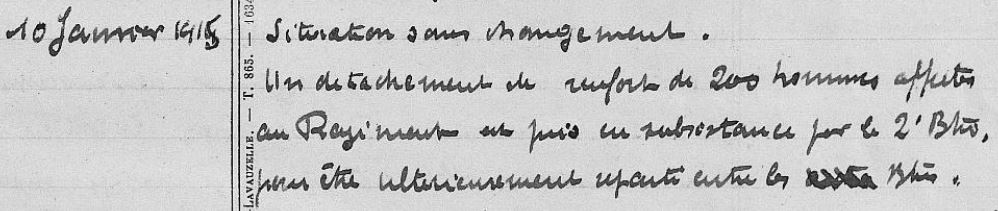 10 Janvier 1915
Situation sans changement.
Un détachement de renfort de 200 hommes affectés
au Régiment est pris en subsistance par le 2e Btn,
pour être ultérieurement réparti entre les Btns.
LAVAUZELLE. — T. 865. — 1634